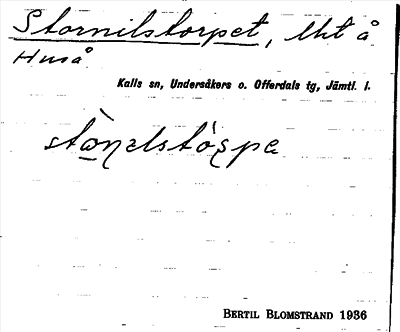 Stornilstorpet, lht å
Huså
Kalls sn, Undersåkers o. Offerdals tg, Jämtl. l.
stòn̥elstórpe
BERTIL BLOMSTRAND 1936